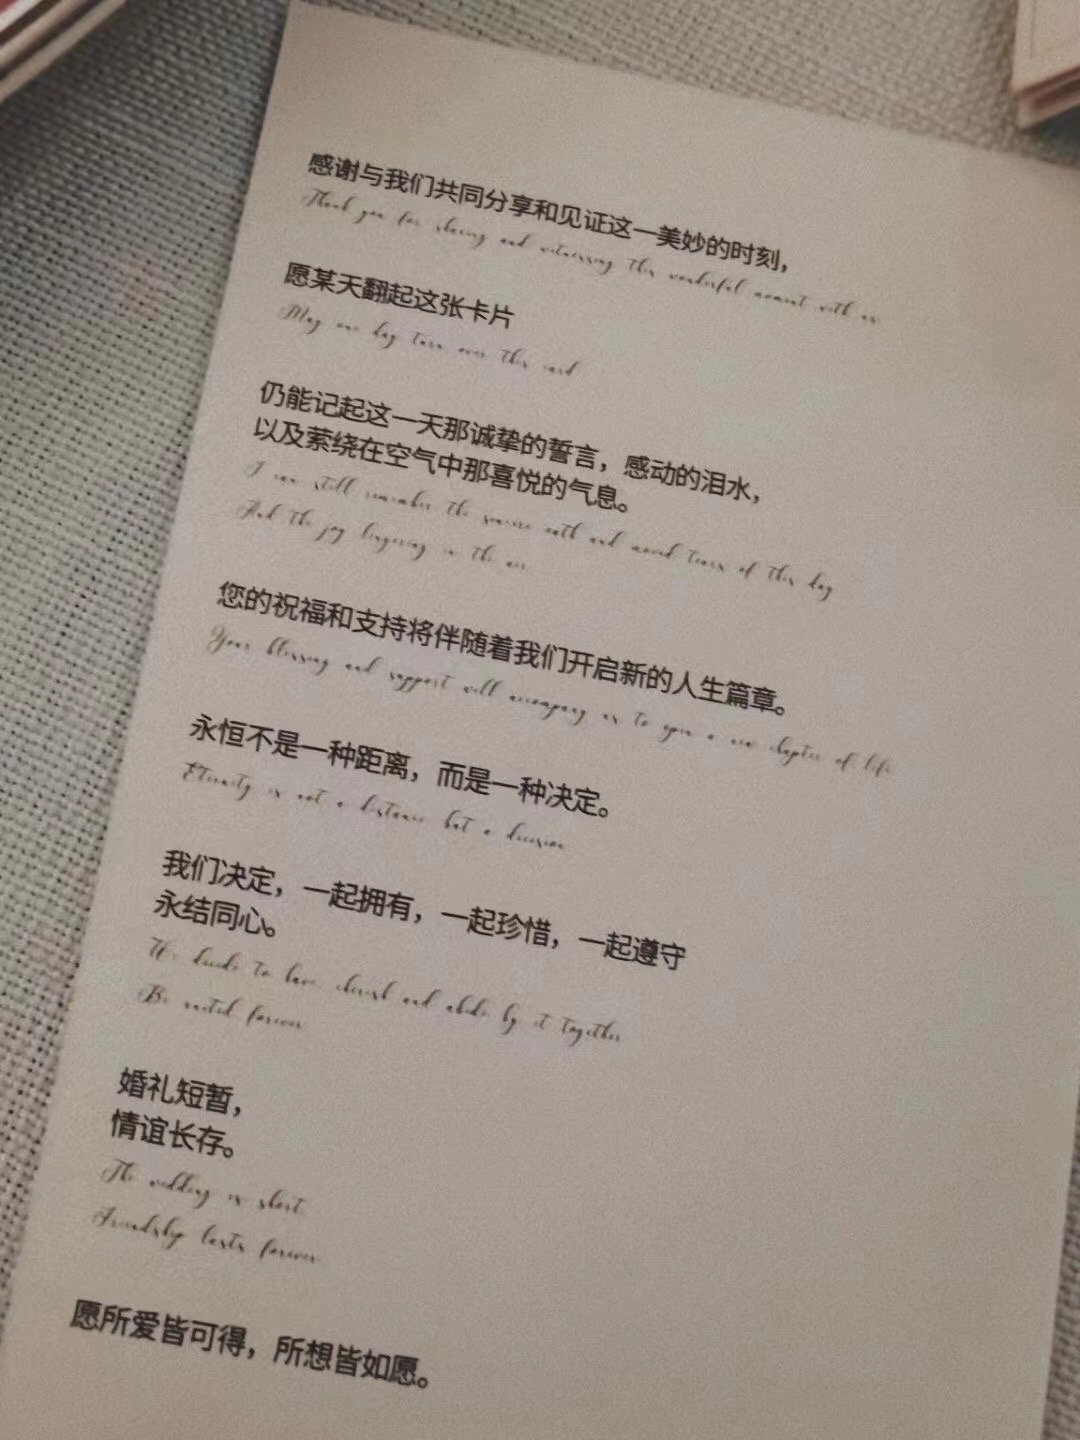 感谢与我们共同分享和见证这一美妙的时刻，
Thank you for sharing and witnessing this wonderful moment with us
愿某天翻起这张卡片
May one day turn over this card
仍能记起这一天那诚挚的誓言，感动的泪水，
以及萦绕在空气中那喜悦的气息。
I can still remember the sincere oath and moved tears of this day
And the joy lingering in the air
您的祝福和支持将伴随着我们开启新的人生篇章。
Your blessing and support will accompany us to open a new chapter of life
永恒不是一种距离，而是一种决定。
Eternity is not a distance but a decision
我们决定，一起拥有，一起珍惜，一起遵守
永结同心。
We decide to have, cherish and abide by it together
Be united forever
婚礼短暂，
情谊长存。
The wedding is short
Friendship lasts forever
愿所爱皆可得，所想皆如愿。